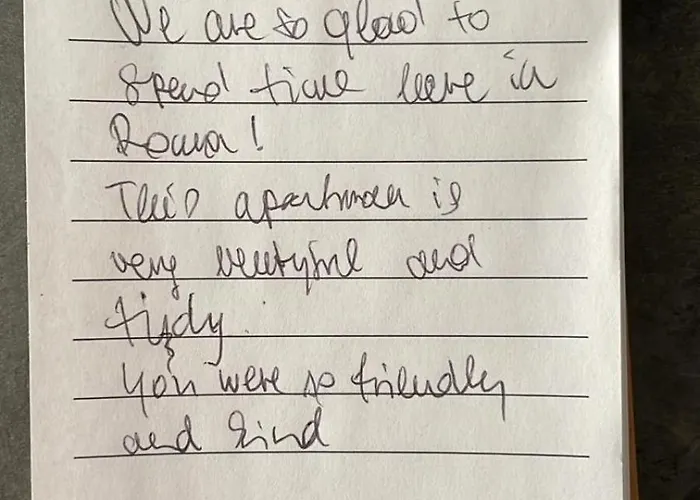 We are so glad to
spend time here in
Roma!
This apartmen is
very beutyful and
tidy.
You were so friendly
and kind